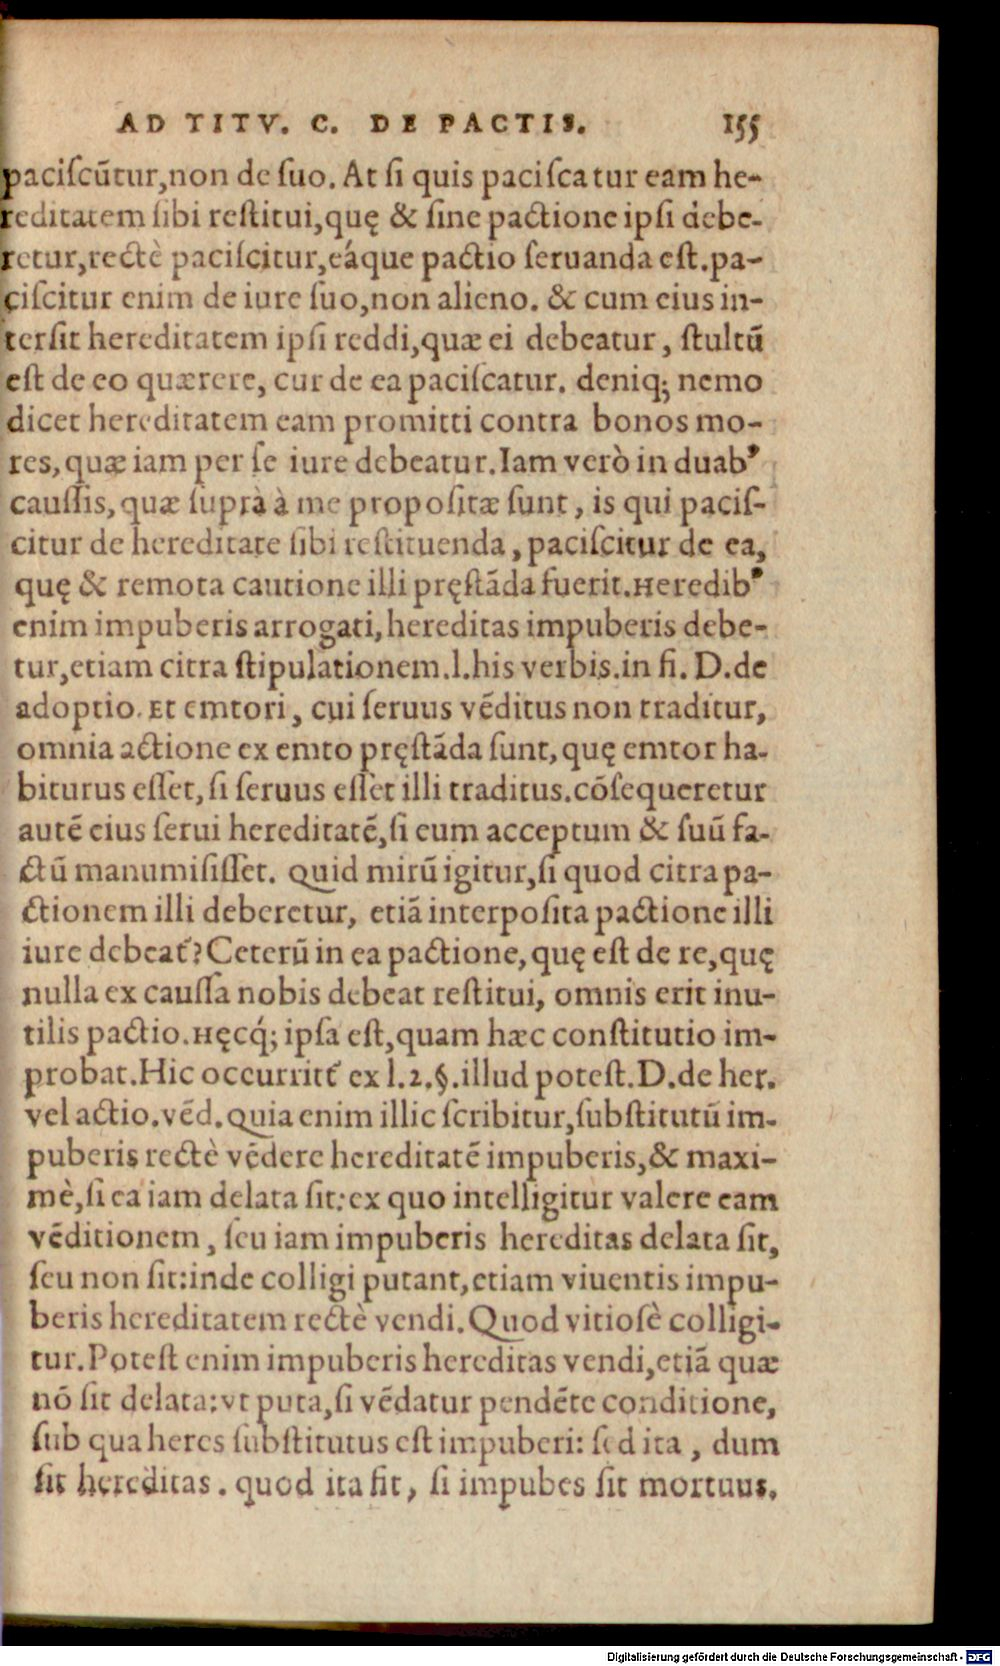 AD TITV. C. DE PACTIS. 155
paciſcũtur,non de ſuo. At ſi quis paciſcatur eam he-
reditatem ſibi reſtitui,quę & ſine pactione ipſi debe-
retur,rectè paciſcitur,eáque pactio ſeruanda eſt.pa-
ciſcitur enim de iure ſuo,non alieno. & cum eius in-
terſit hereditatem ipſi reddi,quæ ei debeatur, ſtultũ
eſt de eo quærere, cur de ea paciſcatur. deniq; nemo
dicet hereditatem eam promitti contra bonos mo-
res,quæ iam per ſe iure debeatur.Iam verò in duabꝰ
cauſſis,quæ ſuprà à me propoſitæ ſunt, is qui paciſ-
citur de hereditate ſibi reſtituenda, paciſcitur de ea,
quę & remota cautione illi pręſtãda fuerit.Heredibꝰ
enim impuberis arrogati,hereditas impuberis debe-
tur,etiam citra ſtipulationem.l.his verbis.in fi. D.de
adoptio. Et emtori, cui ſeruus vẽditus non traditur,
omnia actione ex emto pręſtãda ſunt,quę emtor ha-
biturus eſſet,ſi ſeruus eſſet illi traditus.cõſequeretur
autẽ eius ſerui hereditatẽ,ſi eum acceptum & ſuũ fa-
ctũ manumiſiſſet. Quid mirũ igitur,ſi quod citra pa-
ctionem illi deberetur, etiã interpoſita pactione illi
iure debeat᷑?Ceterũ in ea pactione,quę eſt de re,quę
nulla ex cauſſa nobis debeat reſtitui, omnis erit inu-
tilis pactio.Hęcq́; ipſa eſt,quam hæc conſtitutio im-
probat.Hic occurritt᷑ ex l.2.§.illud poteſt.D.de her.
vel actio.vẽd.Quia enim illic ſcribitur,ſubſtitutũ im-
puberis rectè vẽdere hereditatẽ impuberis,& maxi-
mè,ſi ea iam delata ſit:ex quo intelligitur valere eam
vẽditionem, ſeu iam impuberis hereditas delata ſit,
ſeu non ſit:inde colligi putant,etiam viuentis impu-
beris hereditatem rectè vendi.Quod vitioſè colligi-
tur.Poteſt enim impuberis hereditas vendi,etiã quæ
nõ ſit delata:vt puta,ſi vẽdatur pendẽte conditione,
ſub qua heres ſubſtitutus eſt impuberi: ſed ita, dum
ſit hereditas. quod ita fit, ſi impubes ſit mortuus.
Digitalisierung gefördert durch die Deutsche Forschungsgemeinschaft - DFG